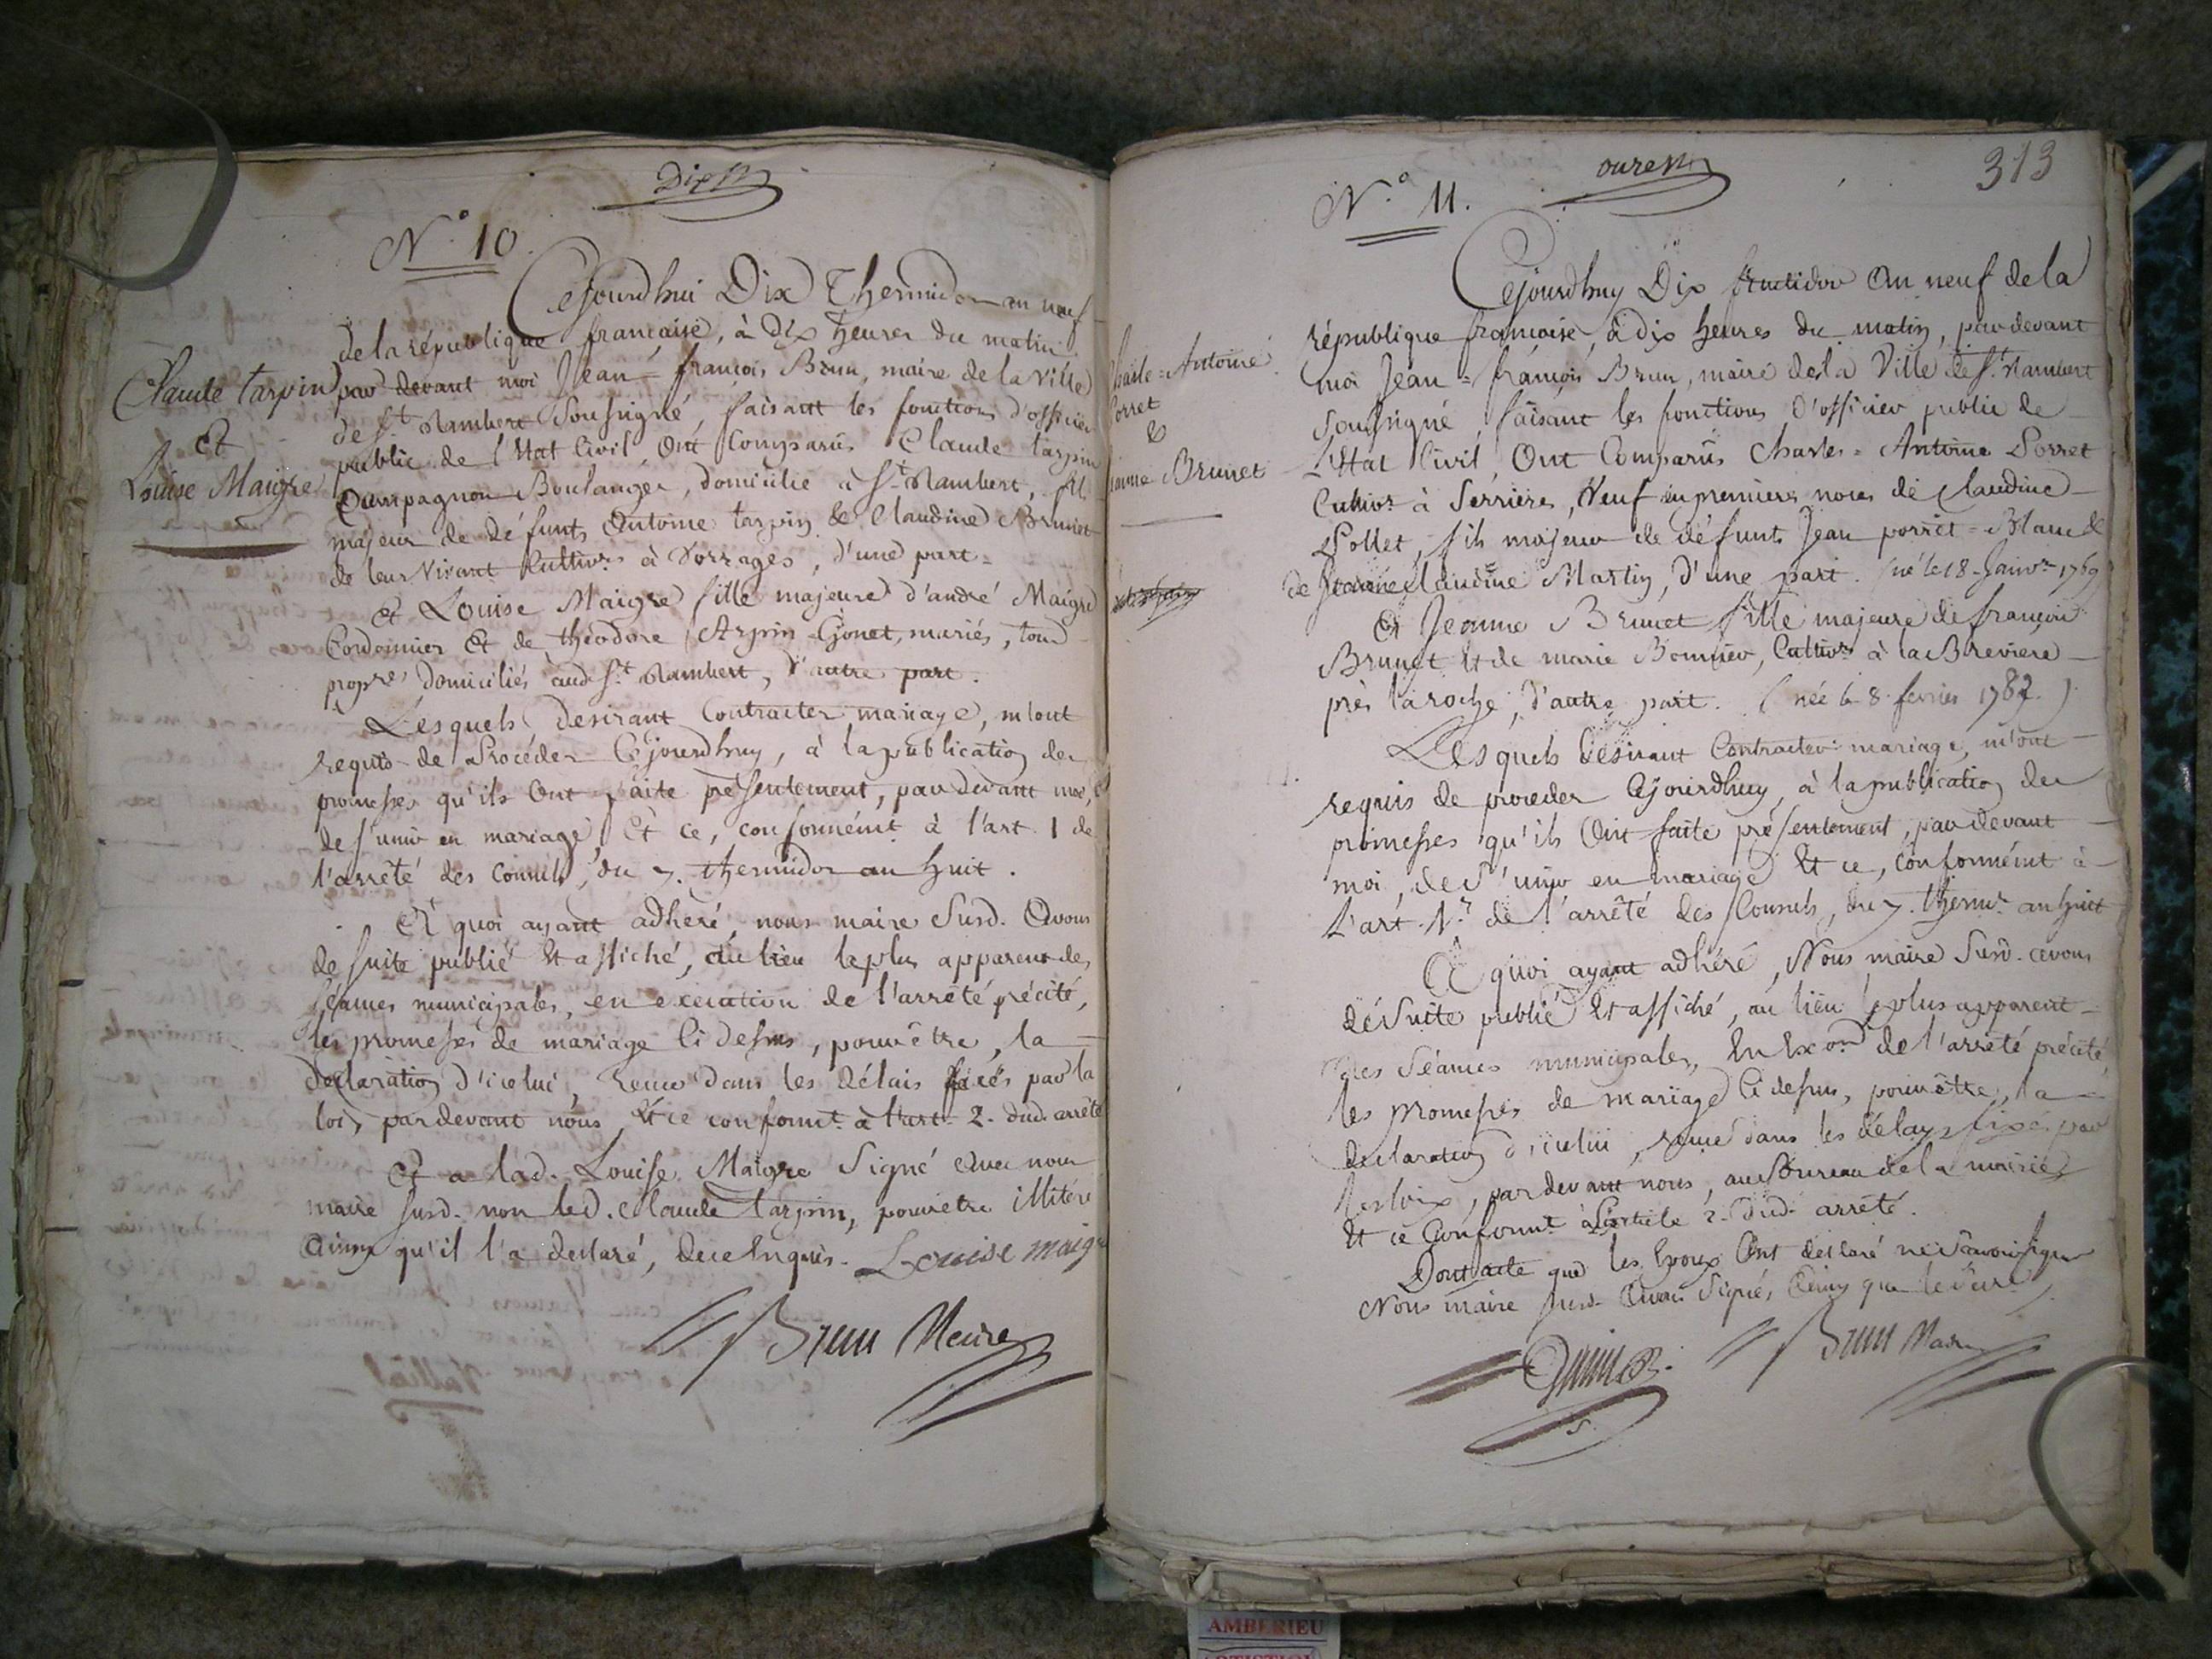 Dix
N° 10
Cejourdhui Dix Thermidor an neuf
de la république française, à Dix heures du matin
Claude tarpin
par devant moi Jean=françois Brun, maire de la Ville
de St Rambert soussigné, faisant les fonctions d'officier
Et
public de l'Etat Civil, ont Comparûs Claude tarpin
Louise Maigre
Compagnon Boulanger, domicilié à St Rambert, fils
majeur de défunts Antoine tarpin & Claudine Brunet
de leur vivant Cultivrs à Vorrages, d'une part=
Et Louise Maigre fille majeure d'andré Maigre
Cordonnier Et de théodore Arpin Gonet, mariés, tous
propres domiciliés aud St Rambert, d'autre part.
Lesquels desirant Contracter mariage, m'ont
requis de Proceder Cejourdhuy, à la publication des
promesses qu'ils Ont faite présentement, pardevant moi,
de s'unir en mariage Et ce, conformémt à l'art 1 de
l'arrêté des Consuls, du 7. thermidor an huit.
Et quoi ayant adhéré, nous maire susd. Avons
de suite publié Et affiché, au lieu le plus apparent des
séances municipales, en execution de l'arrêté précité,
les promesses de mariage Ci dessus, pour être, la
declaration d'icelui, reçue dans les délais fixés par la
loi, pardevant nous, Et ce conformt à l'art 2. dud arrêté
Et a lad. Louise Maigre Signé Avec nous
maire susd. non led. Claude tarpin, pour être illitéré
Ainsy qu'il l'a declaré, de ce Enquis. Louise maigre
Brun Maire
onze
313
N° 11.
Cejourdhuy Dix fructidor An neuf de la
république française, à dix heures du matin, par devant
Charle=Antoine
moi Jean=françois Brun, maire de la Ville de St Rambert
Porret
soussigné, faisant les fonctions d'officier public de
&
L'Etat Civil, Ont Comparûs Charles=Antoine Porret
Jeanne Brunet
Cultivr à Serrières, Veuf en premieres noces de Claudine
Pollet, fils majeur de défunts Jean porret=Blanc &
de Claudine Martin, d'une part. (né le 18 Janvr 1769)
Et Jeanne Brunet fille majeure de françois
Brunet Et de marie Bonnier, Cultivrs à la Breviere
près la roche, d'autre part. (née le 8 fevrier 1782)
Lesquels Désirant Contracter mariage, m'ont
requis de proceder Cejourdhuy, à la publication des
promesses qu'ils Ont faite présentement, pardevant
moi, de s'unir en mariage Et ce, conformémt à
L'art. 1er de l'arrêté des Consuls, du 7. thermr an huit
A quoi ayant adhéré, Nous maire susd. avons
de Suite publié Et affiché, au lieu le plus apparent
des Séances municipales, En Exon de l'arrêté précité,
les promesses de mariage Ci dessus, pour être, la
declaration d'icelui, reçue dans les délays fixés par
les loix, pardevant nous, au Bureau de la mairie
Et ce Conformt à L'article 2. dud. arrêté.
Dont acte que les Epoux Ont declaré ne Savoir signer
Nous maire susd Avons Signés, Ainsy que le Secre
Brun Maire
AMBERIEU